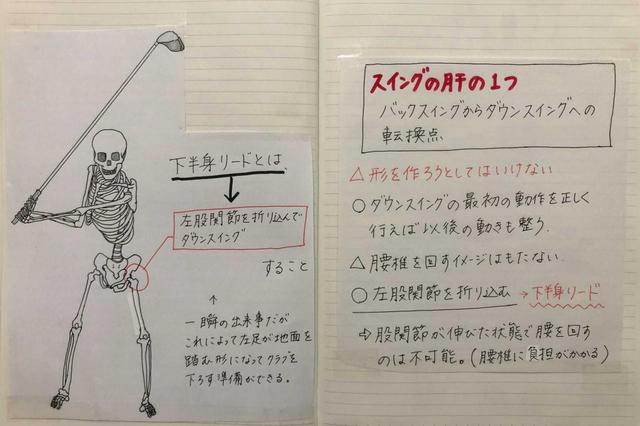 下半身リードとは
左股関節を折り込んで
ダウンスイング
すること
↑
一瞬の出来事だが
これによって左足が地面を
踏む形になってクラブを
下ろす準備ができる。
スイングの肝の1つ
バックスイングからダウンスイングへの
転換点
△形を作ろうとしてはいけない
○ダウンスイングの最初の動作を正しく
行えば以後の動きも整う.
△腰椎を回すイメージはもたない.
○左股関節を折り込む→下半身リード
⇨股関節が伸びた状態で腰を回す
のは不可能。(腰椎に負担がかかる)